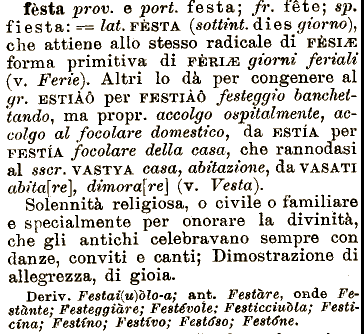 fèsta prov. e port. festa; fr. fête; sp.
fiesta: = lat. FÈSTA (sottint. dies giorno),
che attiene allo stesso radicale di FÈSIÆ
forma primitiva di FÈRIÆ giorni feriali
(v. Ferie). Altri lo dà per congenere al
gr. ESTIÀÔ per FESTIÀÔ festeggio banchet-
tando, ma propr. accolgo ospitalmente, ac-
colgo al focolare domestico, da ESTÍA per
FESTÍA focolare della casa, che rannodasi
al sscr. VASTYA casa, abitazione, da VASATI
abita[re], dimora[re] (v. Vesta).
Solennità religiosa, o civile o familiare
e specialmente per onorare la divinità,
che gli antichi celebravano sempre con
danze, conviti e canti; Dimostrazione di
allegrezza, di gioia.
Deriv. Festai(u)òlo-a; ant. Festàre, onde Fe-
stànte; Festeggiàre; Festévole; Festicciuòla; Festi-
cìna; Festíno; Festívo; Festóso; Festóne.